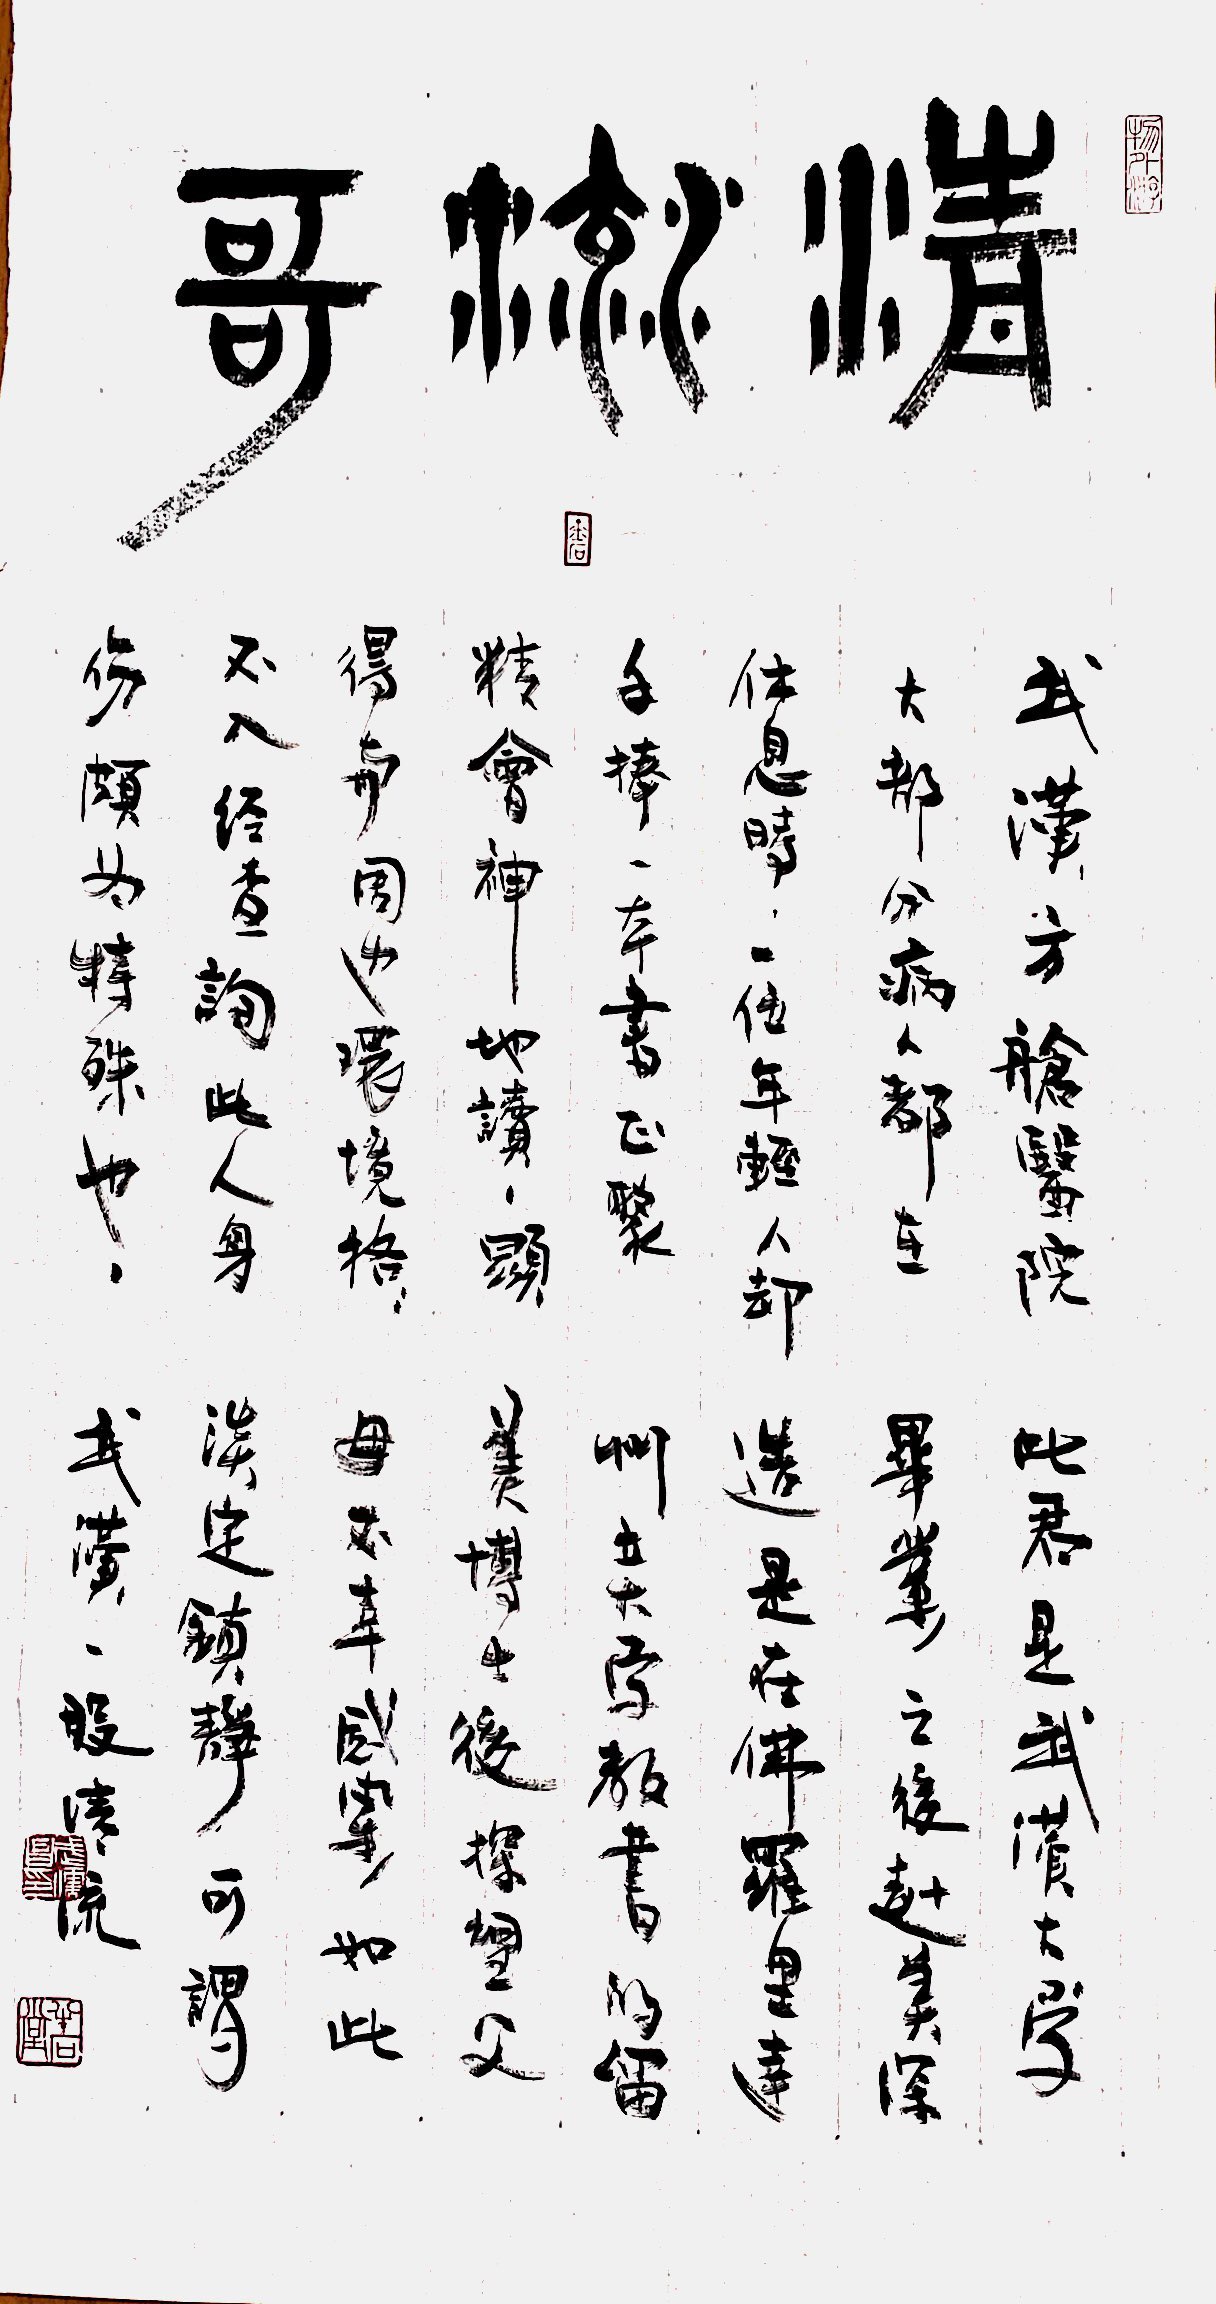 物外游
清流哥
武漢方艙醫院
大部分病人都在
休息時、一位年輕人却
手捧一本書正聚
精會神地讀、顯
得與周边環境格〻
不入经查詢此人身
份頗为特殊也、
此君是武漢大学
畢業之後赴美深
造是在佛羅里達
州立大学教書的留
美博士後探望父
母不幸感染如此
淡定鎮靜可謂
武漢一股清流